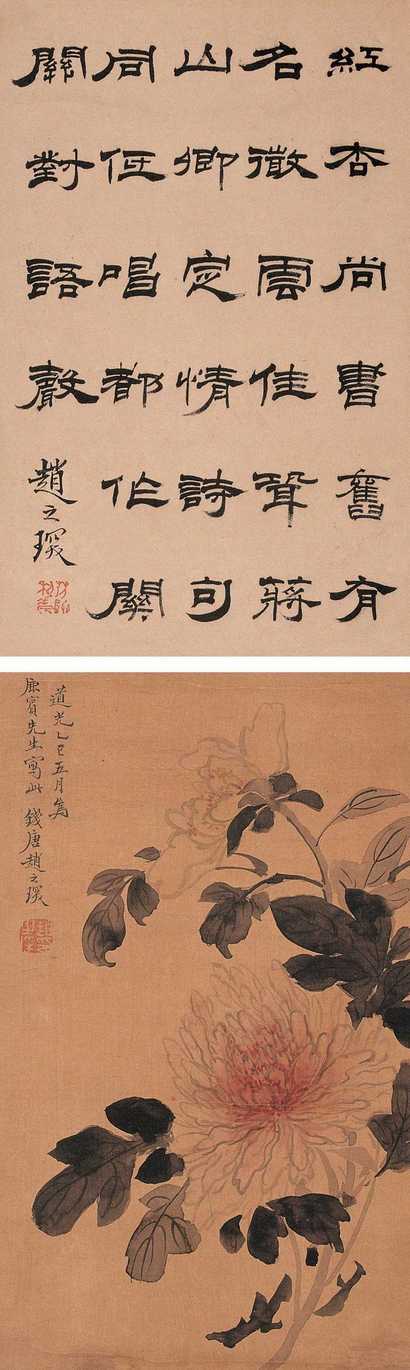 紅杏尚書舊有
名微雲佳聟蔣
山卿定情詩句
同低唱都作關
關對語聲
趙之琛
道光乙巳五月為
賓先生寫此 錢唐趙之琛